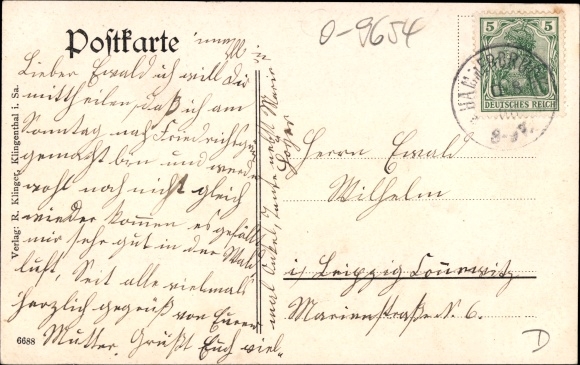 Postkarte
O-9654
5 5
DEUTSCHES REICH
HAMMERBRÜ
Lieber Ewald ich will dir
mittheilen, daß ich am
Sonntag nach Friedrichsgrün
gemacht bin und werde
wohl noch nicht gleich
wieder kommen es gefällt
mir sehr gut in der Wald
luft, Seit alle vielmals
herzlich gegrüß von Eurer
Mutter. Grüßt Euch viel-
mal Onkel, Tante nebst Marie
Herrn Ewald
Wilhelm
in Leipzig Connewitz
Marienstraße N. 6.
Verlag: R. Klinger, Klingenthal i. Sa.
6688
D